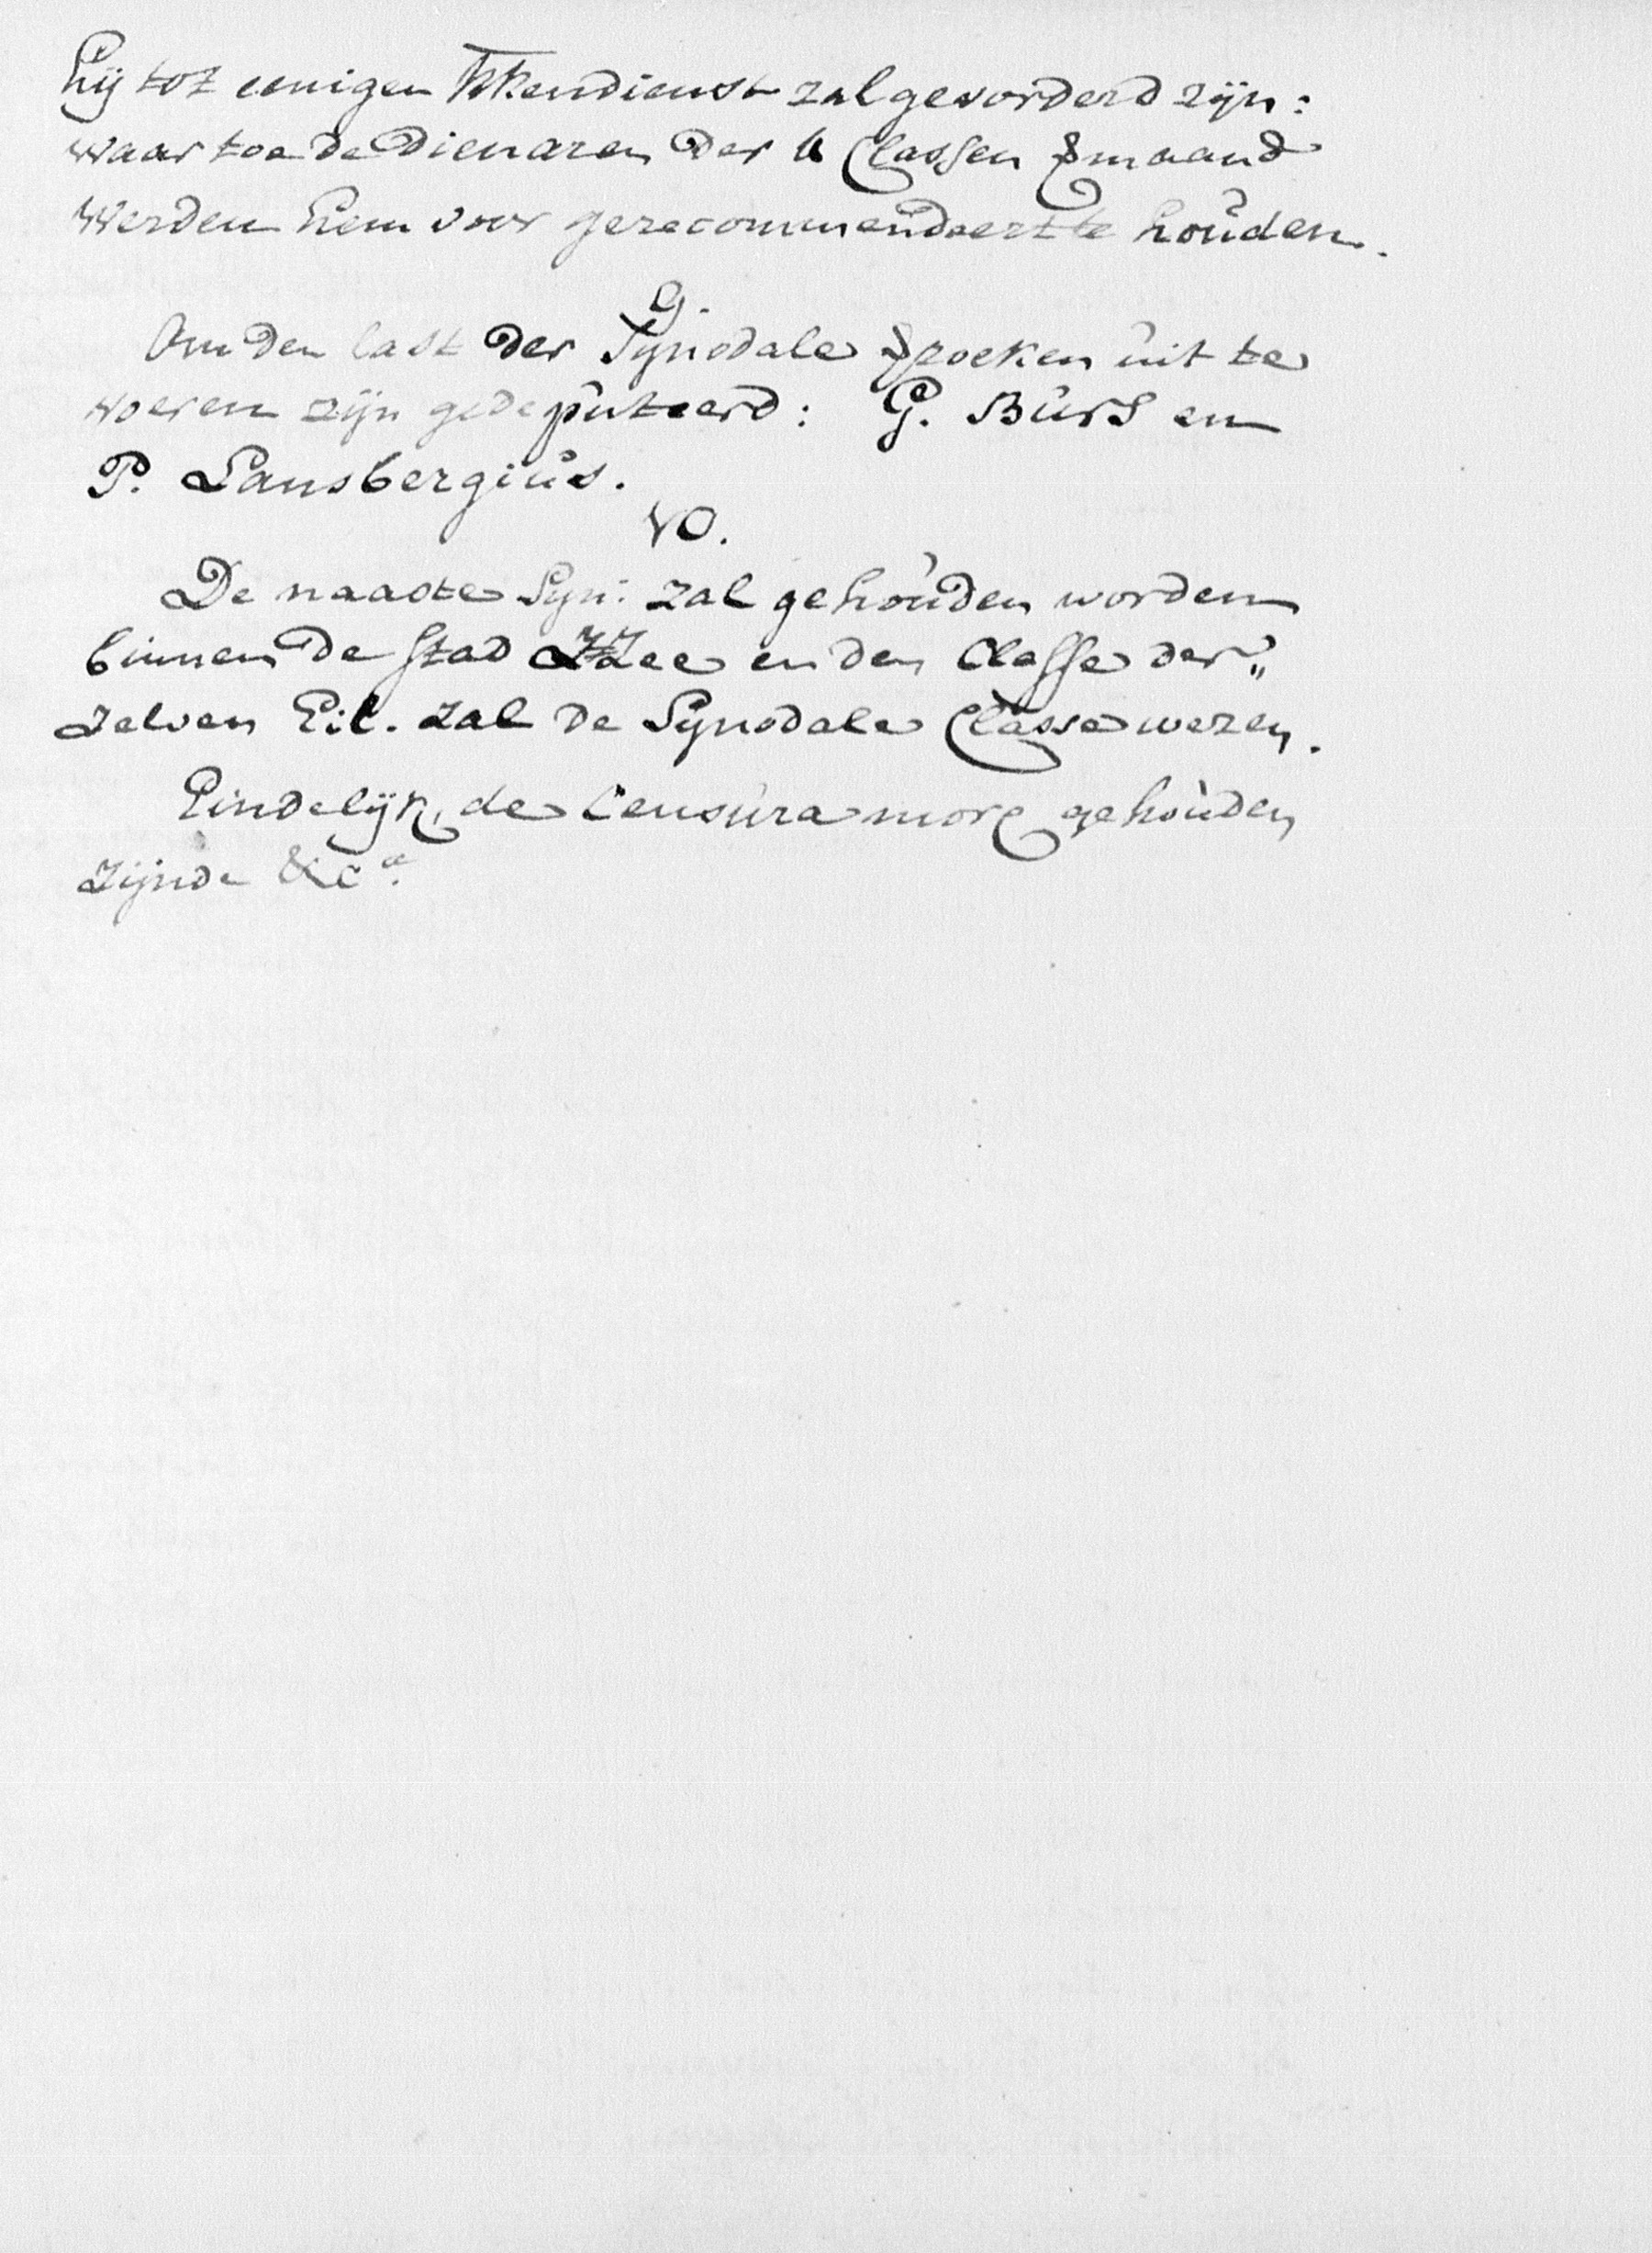 hij tot eenigen kkendienst zal gevorderd zijn:
waar toe de Dienaren der 4 Classen vermaand
werden hem voor gerecommandeert te houden.
9.
Om den last der Synodale zoeken uit te
voeren zijn gedeputeerd: G. Burs en
P. Lansbergius.
10.
De naaste Syn: zal gehouden worden
binnen de stad ZZee en den Classe der„
zelven Eil. zal de Synodale Classe wezen.
Eindelijk, de Censura mor gehouden
zijnde &ca.